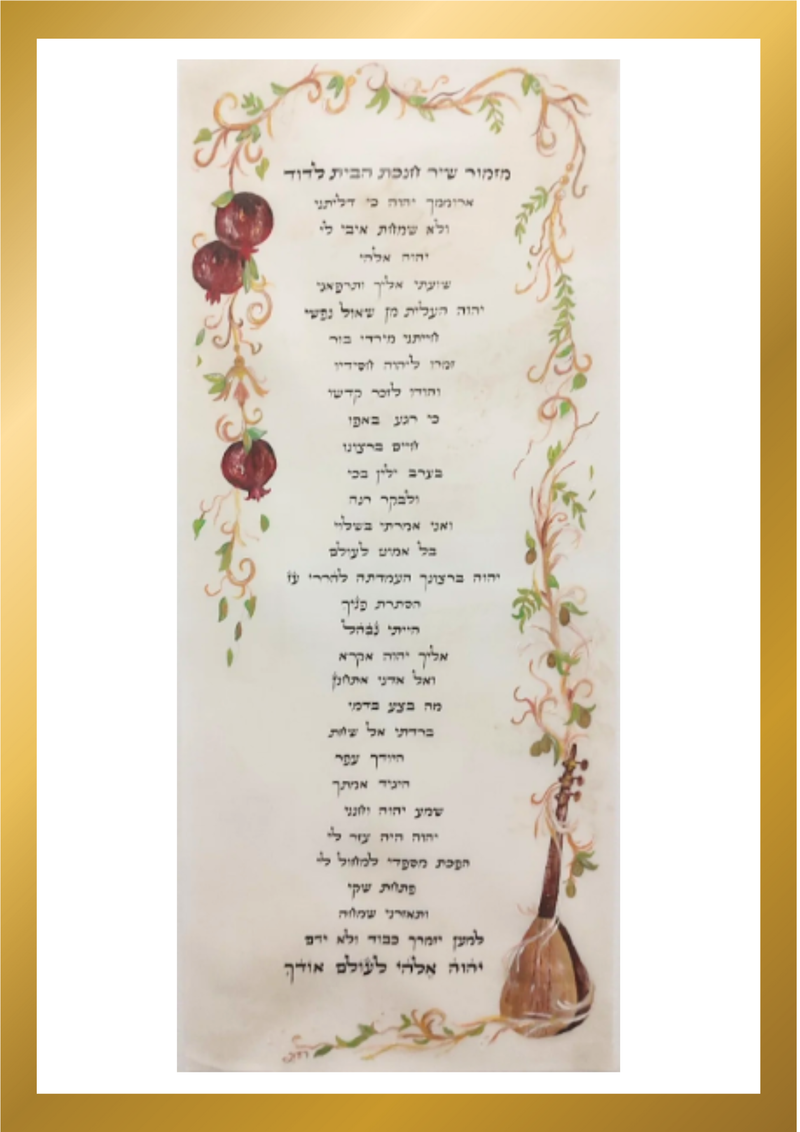 מזמור שיר חנכת הבית לדוד
ארוממך יהוה כי דליתני
ולא שמחת איבי לי
יהוה אלהי
שועתי אליך ותרפאני
יהוה העלית מן שאול נפשי
חייתני מירדי בור
זמרו ליהוה חסידיו
והודו לזכר קדשו
כי רגע באפו
חיים ברצונו
בערב ילין בכי
ולבקר רנה
ואני אמרתי בשלוי
בל אמוט לעולם
יהוה ברצונך העמדתה להררי עז
הסתרת פניך
הייתי נבהל
אליך יהוה אקרא
ואל אדני אתחנן
מה בצע בדמי
ברדתי אל שחת
היודך עפר
היגיד אמתך
שמע יהוה וחנני
יהוה היה עזר לי
הפכת מספדי למחול לי
פתחת שקי
ותאזרני שמחה
למען יזמרך כבוד ולא ידם
יהוה אלהי לעולם אודך